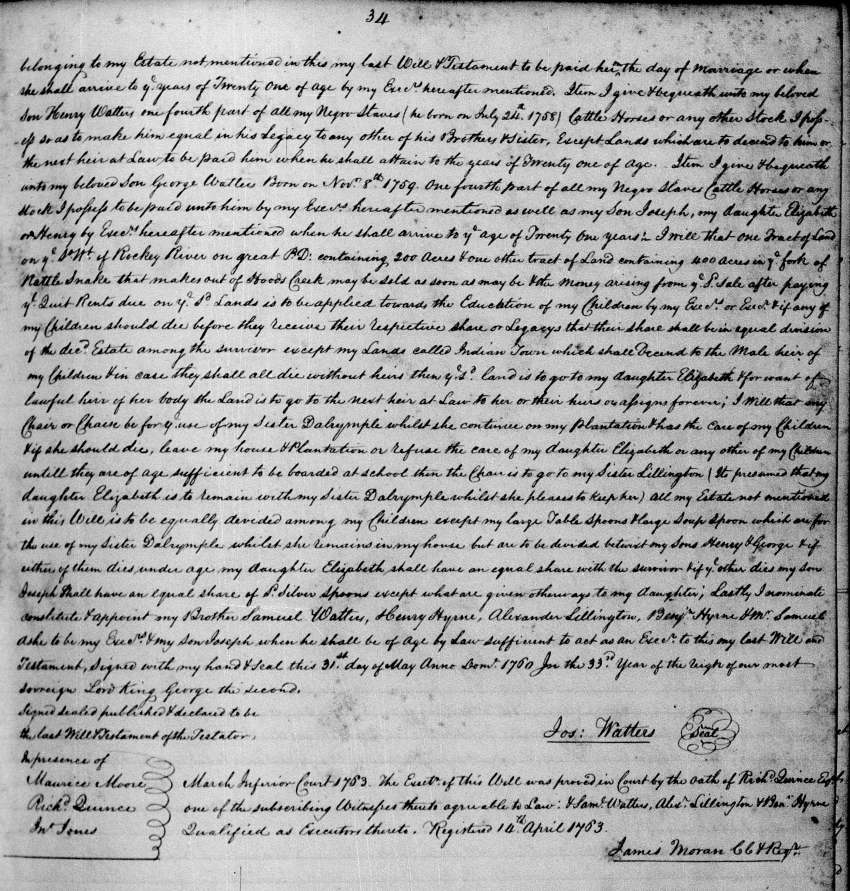 34
belonging to my Estate not mentioned in this my last Will & Testament to be paid her the day of Marriage or when
she shall arrive to ye years of Twenty One of age by my Execrs hereafter mentioned. Item I give & bequeath unto my beloved
Son Henry Watters one fourth part of all my Negro Slaves (he born on July 24th 1758) Cattle Horses or any other Stock I pos-
ess so as to make him equal in his Legacy to any other of his Brothers & Sister, Except Lands which are to decend to him or
the next heir at Law to be paid him when he shall attain to the years of Twenty one of Age. Item I give & bequeath
unto my beloved Son George Watters Born on Novr 8th 1759. One fourth part of all my Negro Slaves Cattle Horses or any
Stock I possess to be paid unto him by my Execrs hereafter mentioned as well as my Son Joseph, my daughter Elizabeth
or Henry by Execrs hereafter mentioned when he shall arrive to ye age of Twenty One years. I will that One Tract of Land
on ye So Wt of Rockey River on great P.D: containing 200 Acres & one other tract of Land containing 400 acres in ye fork of
Rattle Snake that makes out of Hoods Creek may be sold as soon as may be & the Money arising from ye Sd Sale after paying
ye Quit Rents due on ye Sd Lands is to be applied towards the Eduction of my Children by my Execrs or Execr & if any of
my Children should die before they receive their respective share or Legacys that their share shall be in equal division
of the decd Estate among the survivor except my Lands called Indian Town which shall Decend to the Male heir of
my Children & in case they shall all die without heirs then ye Sd land is to go to my daughter Elizabeth & for want of a
lawful heir of her body the Land is to go to the next heir at Law to her or their heirs or assigns forever; I Will that my
Chair or Chaise be for ye use of my Sister Dalrymple whilst she continue on my Plantation & has the Care of my Children
& if she should die, leave my house & Plantation or refuse the care of my daughter Elizabeth or any other of my Children
untill they are of age sufficient to be boarded at school then the Chair is to go to my Sister Lillington (Its presumed that my
daughter Elizabeth is to remain with my Sister Dalrymple whilst she pleases to keep her) All my Estate not mentioned
in this Will is to be equally devided among my Children except my large Table Spoons & large Soup Spoon which are for
the use of my Sister Dalrymple whilst she remains in my house but are to be devided betwixt my Sons Henry & George & if
either of them dies, under age my daughter Elizabeth shall have an equal share with the survivor & if ye other dies my son
Joseph shall have an equal share of Sd Silver Spoons except what are given otherways to my daughter; Lastly I nominate
constitute & appoint my Brother Samuel Watters, Henry Hyrne, Alexander Lillington, Benjn Hyrne & Mr Samuel
Ashe to be my Execrs & my son Joseph when he shall be of Age by Law sufficient to act as an Execr to this my last Will and
Testament, Signed with my hand & Seal this 31st day of May Anno Domi 1760 In the 33rd Year of the reigh of our most
sovreign Lord King George the second.
Signed sealed published & declared to be
the last Will & Testament of the Testator,
In presence of
Jos: Watters Seal
Maurice Moore
Richd Quince
Jno Jones
March Inferior Court 1763. The Exetn of this Will was proved in Court by the oath of Richd Quince Esqr
one of the subscribing Witnesses thereto agreable to Law: & Saml Watters, Alexr Lillington & Benn Hyrne
Qualified as Executors thereto. Registered 14th April 1763.
James Moran CC & Regr